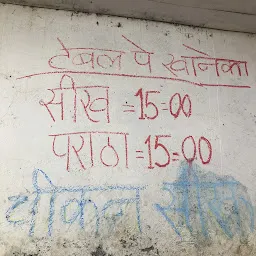 टेबल पे खानेका
सीख =15=00
पराठा=15=00
चीकन सीख